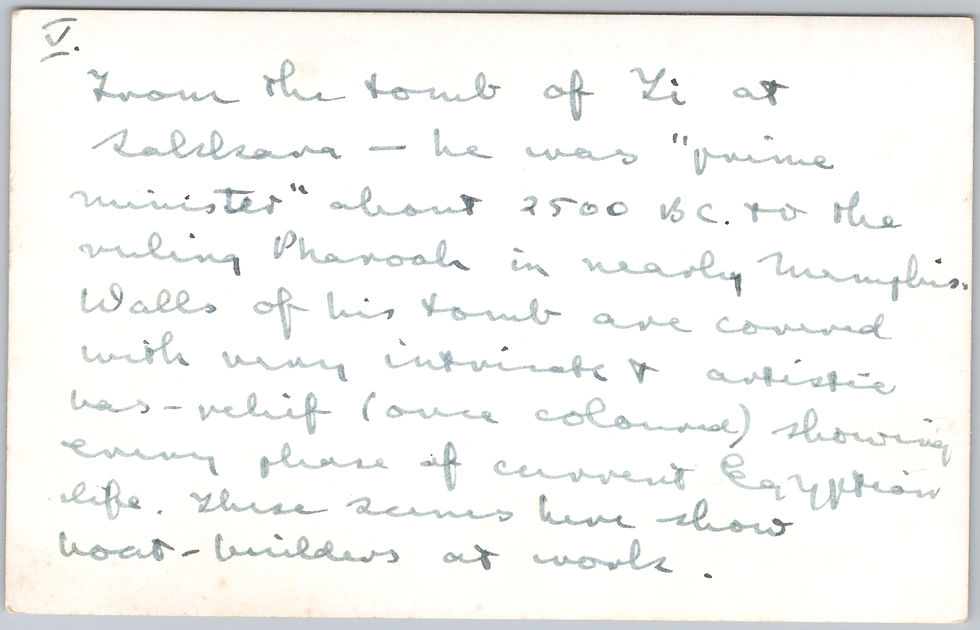 V.
From the tomb of Ti at
Sakkara — he was "prime
minister" about 2500 BC. to the
ruling Pharoah in nearby Memphis.
Walls of his tomb are covered
with very intricate & artistic
bas-relief (once coloured) showing
every phase of current Egyptian
life. These scenes here show
boat-builders at work.